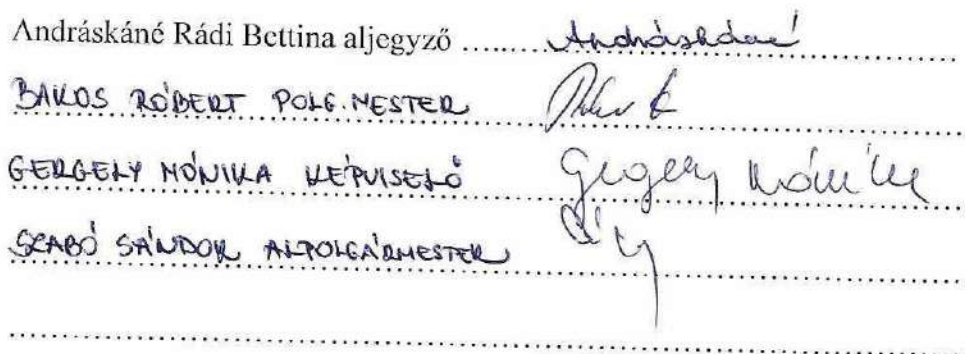 Andráskáné Rádi Bettina aljegyző ....... Andráskáné
BAKOS RÓBERT POLG. MESTER
GERGELY MÓNIKA KÉPVISELŐ Gergely Mónika
SZABÓ SÁNDOR ALPOLGÁRMESTER